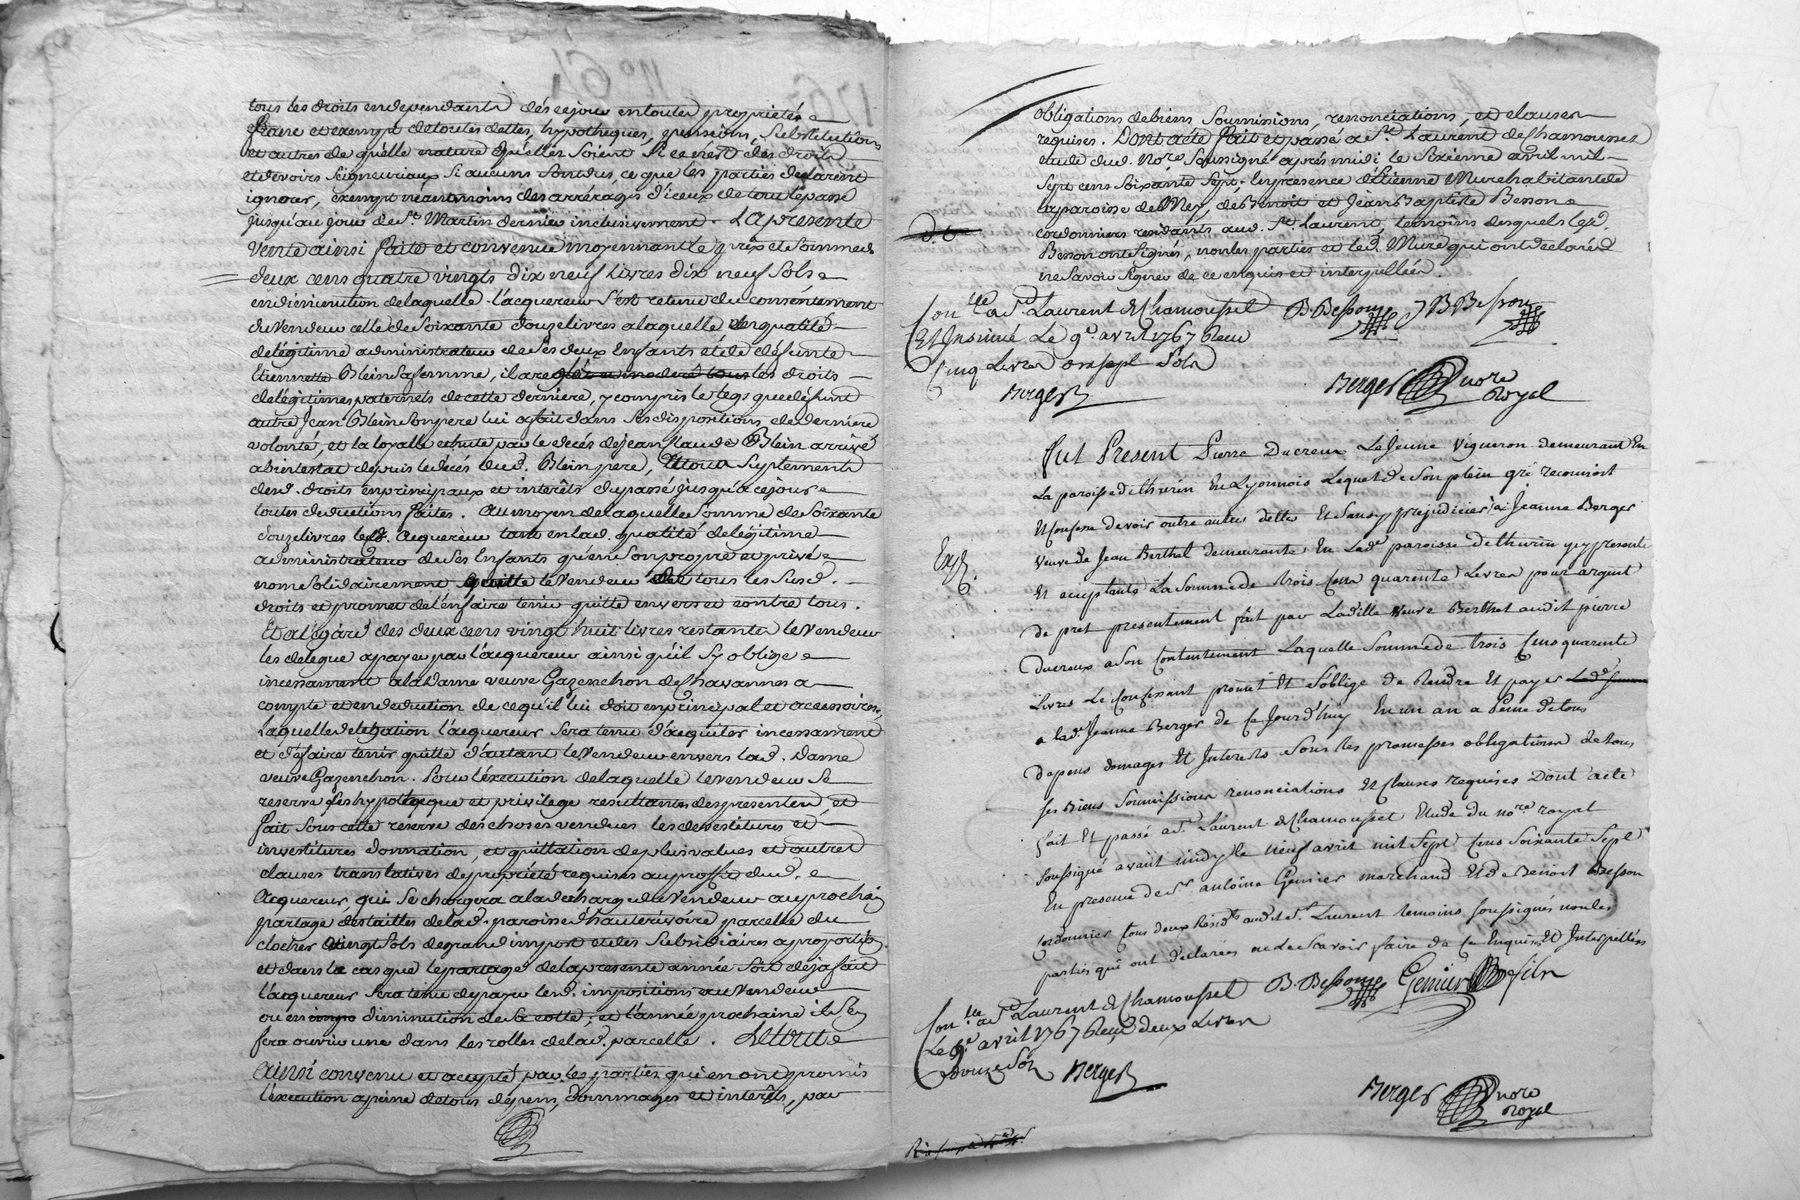 tous les droits en dependants dés ce jour en toute proprieté
franc et exempt de toutes dettes, hypotheques, pensions, substitutions
et autres de quelle nature qu'elles soient si ce n'est des droits
et devoirs seigneuriaux si aucuns sont dus ce que les parties declarent
ignorer, exempt neantmoins des arrérages d'iceux de tout le passé
jusqu'au jour de St. Martin dernier inclusivement. La presente
vente ainsi faite et convenue moyennant le prix et somme de
deux cens quatre vingts dix neuf livres dix neuf sols
en diminution de laquelle l'acquereur s'est retenu du consentement
du vendeur celle de soixante douze livres a laquelle en qualité
de légitime administrateur de ses deux enfants et de défunte
Etiennette Blein sa femme, il a les droits
de légitimes paternels de cette derniere, y compris le legs que défunt
autre Jean Blein son pere lui a fait dans ses dispositions de derniere
volonté, et la loyalle echute par le decés de jean Claude Blein arrivé
abintestat depuis le décés dud. Blein pere, et tous suplements
desd. droits en principaux et interêts du passé jusqu'a ce jour
toutes deductions faites. Au moyen de laquelle somme de soixante
douze livres led. acquereur tant en lad. qualité de légitime
administrateur de ses enfants qu'en son propre et privé
nom solidairement quitte le vendeur de tous les susd.
droits et promet de l'en faire tenir quitte envers et contre tous.
Et a l'égard des deux cens vingt huit livres restants le vendeur
les delegue a payer par l'acquereur ainsi qu'il s'y oblige
incessamment a la Dame veuve Gazenchon de Chavannes a
compte et en deduction de ce qu'il lui doit en principal et accessoires,
laquelle delegation l'acquereur sera tenu d'acquiter incessamment
et d'en faire tenir quitte d'autant le vendeur envers lad. Dame
veuve Gazenchon. Pour l'éxecution de laquelle le vendeur se
reserve les hypotheque et privilege resultants des presentes et
fait sous cette reserve des choses vendues les devestitures et
investitures donnation, et quittation de plus values et autres
clauses translatives de propriété requises au proffit dud.
acquereur, qui se chargera a la décharge du vendeur au prochain
partage des tailles de lad. paroisse d'hauterivoire parcelle du
clocher vingt sols de grand impost et des subsidiaires a proportion.
et dans le cas que le partage de la presente année soit déja fait
l'acquereur sera tenu de payer lesd. impositions au vendeur
ou en diminution de sa cotte, et l'année prochaine il s'en
fera ouvrir une dans les rolles de lad. parcelle. Le tout
ainsi convenu et accepté par les parties qui en ont promis
l'éxecution a peine de tous dépens, dommages et interêts, par
obligations de biens soumissions, renonciations, et clauses
requises. Dont acte fait et passé a St. Laurent de Chamousset
etude dud. nore. soussigné aprés midi le sixieme avril mil
sept cens soixante sept. En presence d'Etienne Mure habitant de
la paroisse de Mey, de Benoit et Jean Baptiste Besson
cordonniers residants aud. St. Laurent, temoins desquels lesd.
Besson ont signés, non les parties et led. Mure qui ont declarés
ne savoir signer de ce enquis et interpellés.
Conlle a St. Laurent de Chamousset
Et Insinué Le 9e. avril 1767 Reçu
Cinq Livres dix sept sols
Berger
B. Besson J B Besson
Berger nore
Royal
Fut Present Pierre Ducreux Le Jeune vigneron demeurant En
La paroisse de thurin En Lyonnois Lequel de son plein gré reconnoit
Et Confesse devoir outre autres dettes Et sans y prejudicier, à Jeanne Berger
veuve de Jean Berthet demeurante En Lade. paroisse de thurin icy presente
Et acceptante La somme de trois Cens quarente Livres pour argent
de pret presentement fait par Laditte veuve Berthet audit pierre
Ducreux a son Contentement Laquelle somme de trois Cens quarente
Livres Le Confessant promet Et s'oblige de Rendre Et payer
a lade. Jeanne Berger de Ce Jourd'huy En un an a Peine de tous
depens domages Et Interests sous les promesses obligations de tous
ses Biens soumissions renonciations Et clauses requises Dont acte
fait Et passé a St. Laurent de Chamousset Etude du nore. royal
soussigné avant midy le neuf avril mil sept Cens soixante sept
En presence de Sr. antoine Genier marchand Et de Benoit Besson
Cordonnier tous deux Residts. audit St. Laurent temoins soussignés non les
parties qui ont déclarées ne le scavoir faire de Ce Enquises Et Interpellées
Exp.
Conlle a St. Laurent de Chamousset
Le 9e. avril 1767 Reçu deux Livres
Douze Sols Berger
B. Besson Genier fils
Berger nore
Royal